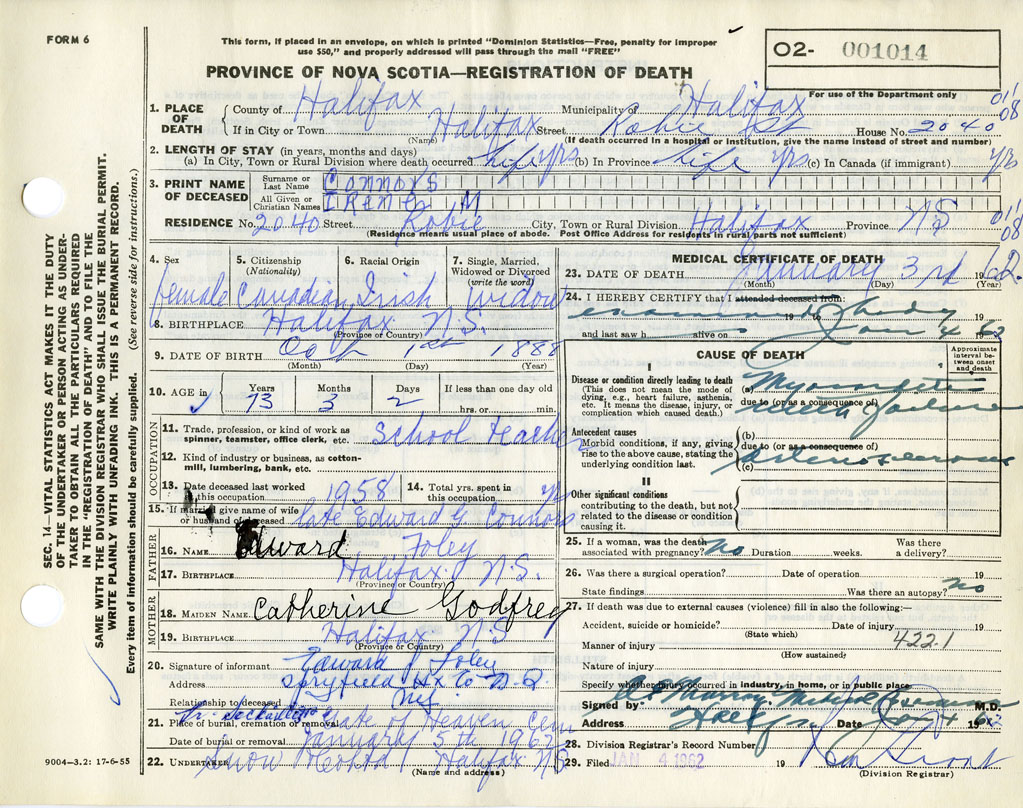 FORM 6
This form, if placed in an envelope, on which is printed "Dominion Statistics—Free, penalty for improper
use $50," and properly addressed will pass through the mail "FREE"
O2- 001014
For use of the Department only
PROVINCE OF NOVA SCOTIA—REGISTRATION OF DEATH
SEC. 14—VITAL STATISTICS ACT MAKES IT THE DUTY
OF THE UNDERTAKER OR PERSON ACTING AS UNDER-
TAKER TO OBTAIN ALL THE PARTICULARS REQUIRED
IN THE "REGISTRATION OF DEATH" AND TO FILE THE
SAME WITH THE DIVISION REGISTRAR WHO SHALL ISSUE THE BURIAL PERMIT.
WRITE PLAINLY WITH UNFADING INK. THIS IS A PERMANENT RECORD.
Every item of information should be carefully supplied. (See reverse side for instructions.)
1. PLACE OF DEATH
County of Halifax Municipality of Halifax 01/08
If in City or Town Halifax Street Robie St House No. 2040
(Name) (If death occurred in a hospital or institution, give the name instead of street and number)
2. LENGTH OF STAY (in years, months and days)
(a) In City, Town or Rural Division where death occurred life yrs (b) In Province Life yrs. (c) In Canada (if immigrant)
3. PRINT NAME OF DECEASED
Surname or Last Name Connors
All Given or Christian Names IRENE M
RESIDENCE No. 2040 Street Robie City, Town or Rural Division Halifax Province N.S 01/08
(Residence means usual place of abode. Post Office Address for residents in rural parts not sufficient)
4. Sex
female
5. Citizenship (Nationality)
Canadian
6. Racial Origin
Irish
7. Single, Married, Widowed or Divorced (write the word)
Widow
8. BIRTHPLACE Halifax N.S.
(Province or Country)
9. DATE OF BIRTH Oct 1st 1888
(Month) (Day) (Year)
10. AGE in
Years Months Days If less than one day old
73 3 2 hrs. or min.
OCCUPATION
11. Trade, profession, or kind of work as
spinner, teamster, office clerk, etc. School teacher
12. Kind of industry or business, as cotton-
mill, lumbering, bank, etc.
13. Date deceased last worked
at this occupation 1958
14. Total yrs. spent in
this occupation
15. If married give name of wife
or husband of deceased late Edward G Connors
FATHER
16. NAME Edward Foley
17. BIRTHPLACE Halifax N.S.
(Province or Country)
MOTHER
18. MAIDEN NAME Catherine Godfrey
19. BIRTHPLACE Halifax N.S
(Province or Country)
20. Signature of informant Edward J Foley
Address Spryfield Hx Co N.S
Relationship to deceased
21. Place of burial, cremation or removal Gate of Heaven Cem
Date of burial or removal January 5th 1962
22. UNDERTAKER Snow Halifax N.S
(Name and address)
9004—3.2: 17-6-55
MEDICAL CERTIFICATE OF DEATH
23. DATE OF DEATH January 3rd 1962
(Month) (Day) (Year)
24. I HEREBY CERTIFY that I attended deceased from:
examined body 19 to
and last saw h alive on Jan 4 62
CAUSE OF DEATH
Approximate interval between onset and death
I
Disease or condition directly leading to death
(This does not mean the mode of
dying, e.g., heart failure, asthenia,
etc. It means the disease, injury, or
complication which caused death.)
(a) Myocarditis
due to (or as a consequence of)
failure
Antecedent causes
Morbid conditions, if any, giving
rise to the above cause, stating the
underlying condition last.
(b)
due to (or as a consequence of)
(c) Arteriosclerosis
II
Other significant conditions
contributing to the death, but not
related to the disease or condition
causing it.
25. If a woman, was the death Was there
associated with pregnancy? No Duration weeks. a delivery?
26. Was there a surgical operation? Date of operation 19
State findings Was there an autopsy? no
27. If death was due to external causes (violence) fill in also the following:—
Accident, suicide or homicide? Date of injury 19
(State which)
Manner of injury 422.1
(How sustained)
Nature of injury
Specify whether injury occurred in industry, in home, or in public place
Signed by M.D.
Address Halifax Date Jan 4 1962
28. Division Registrar's Record Number
29. Filed JAN 4 1962 19
(Division Registrar)